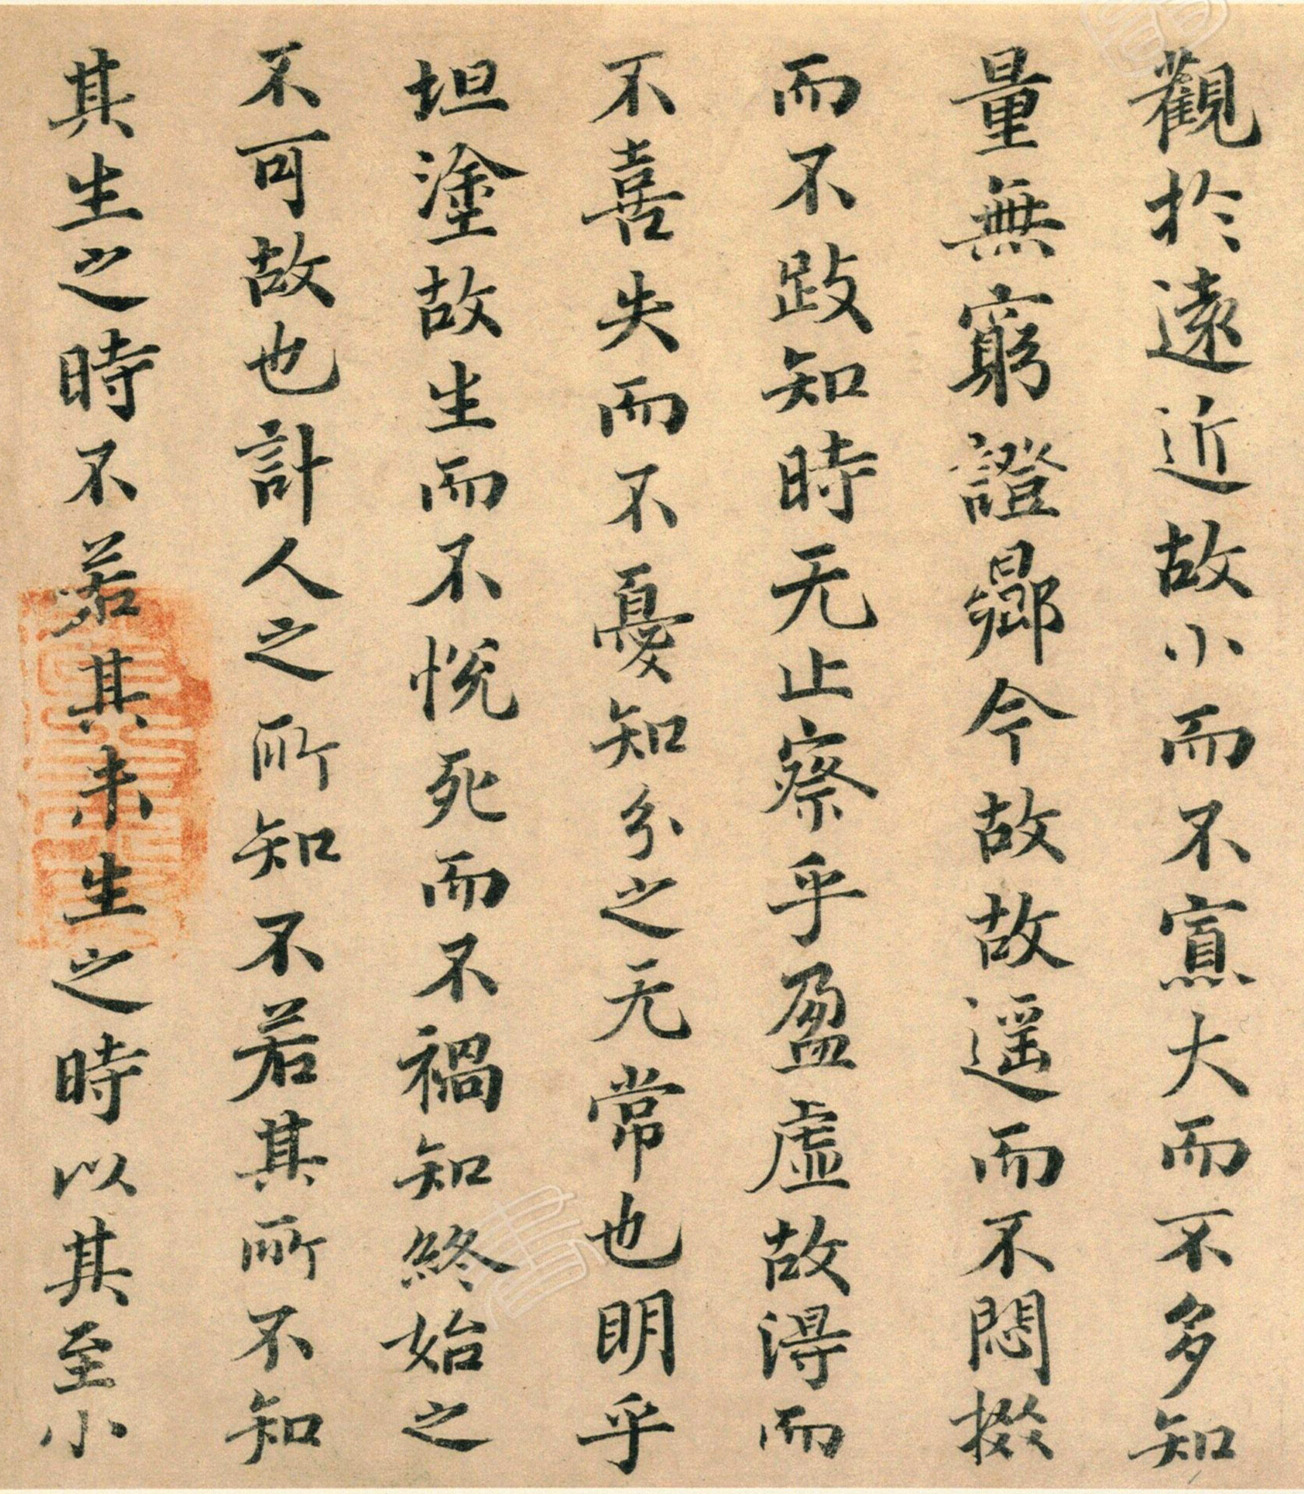 觀於遠近故小而不寡大而不多知
量無窮證曏今故故遥而不悶掇
而不跂知時无止察乎盈虛故得而
不喜失而不憂知分之无常也明乎
坦塗故生而不悅死而不禍知終始之
不可故也計人之所知不若其所不知
其生之時不若其未生之時以其至小